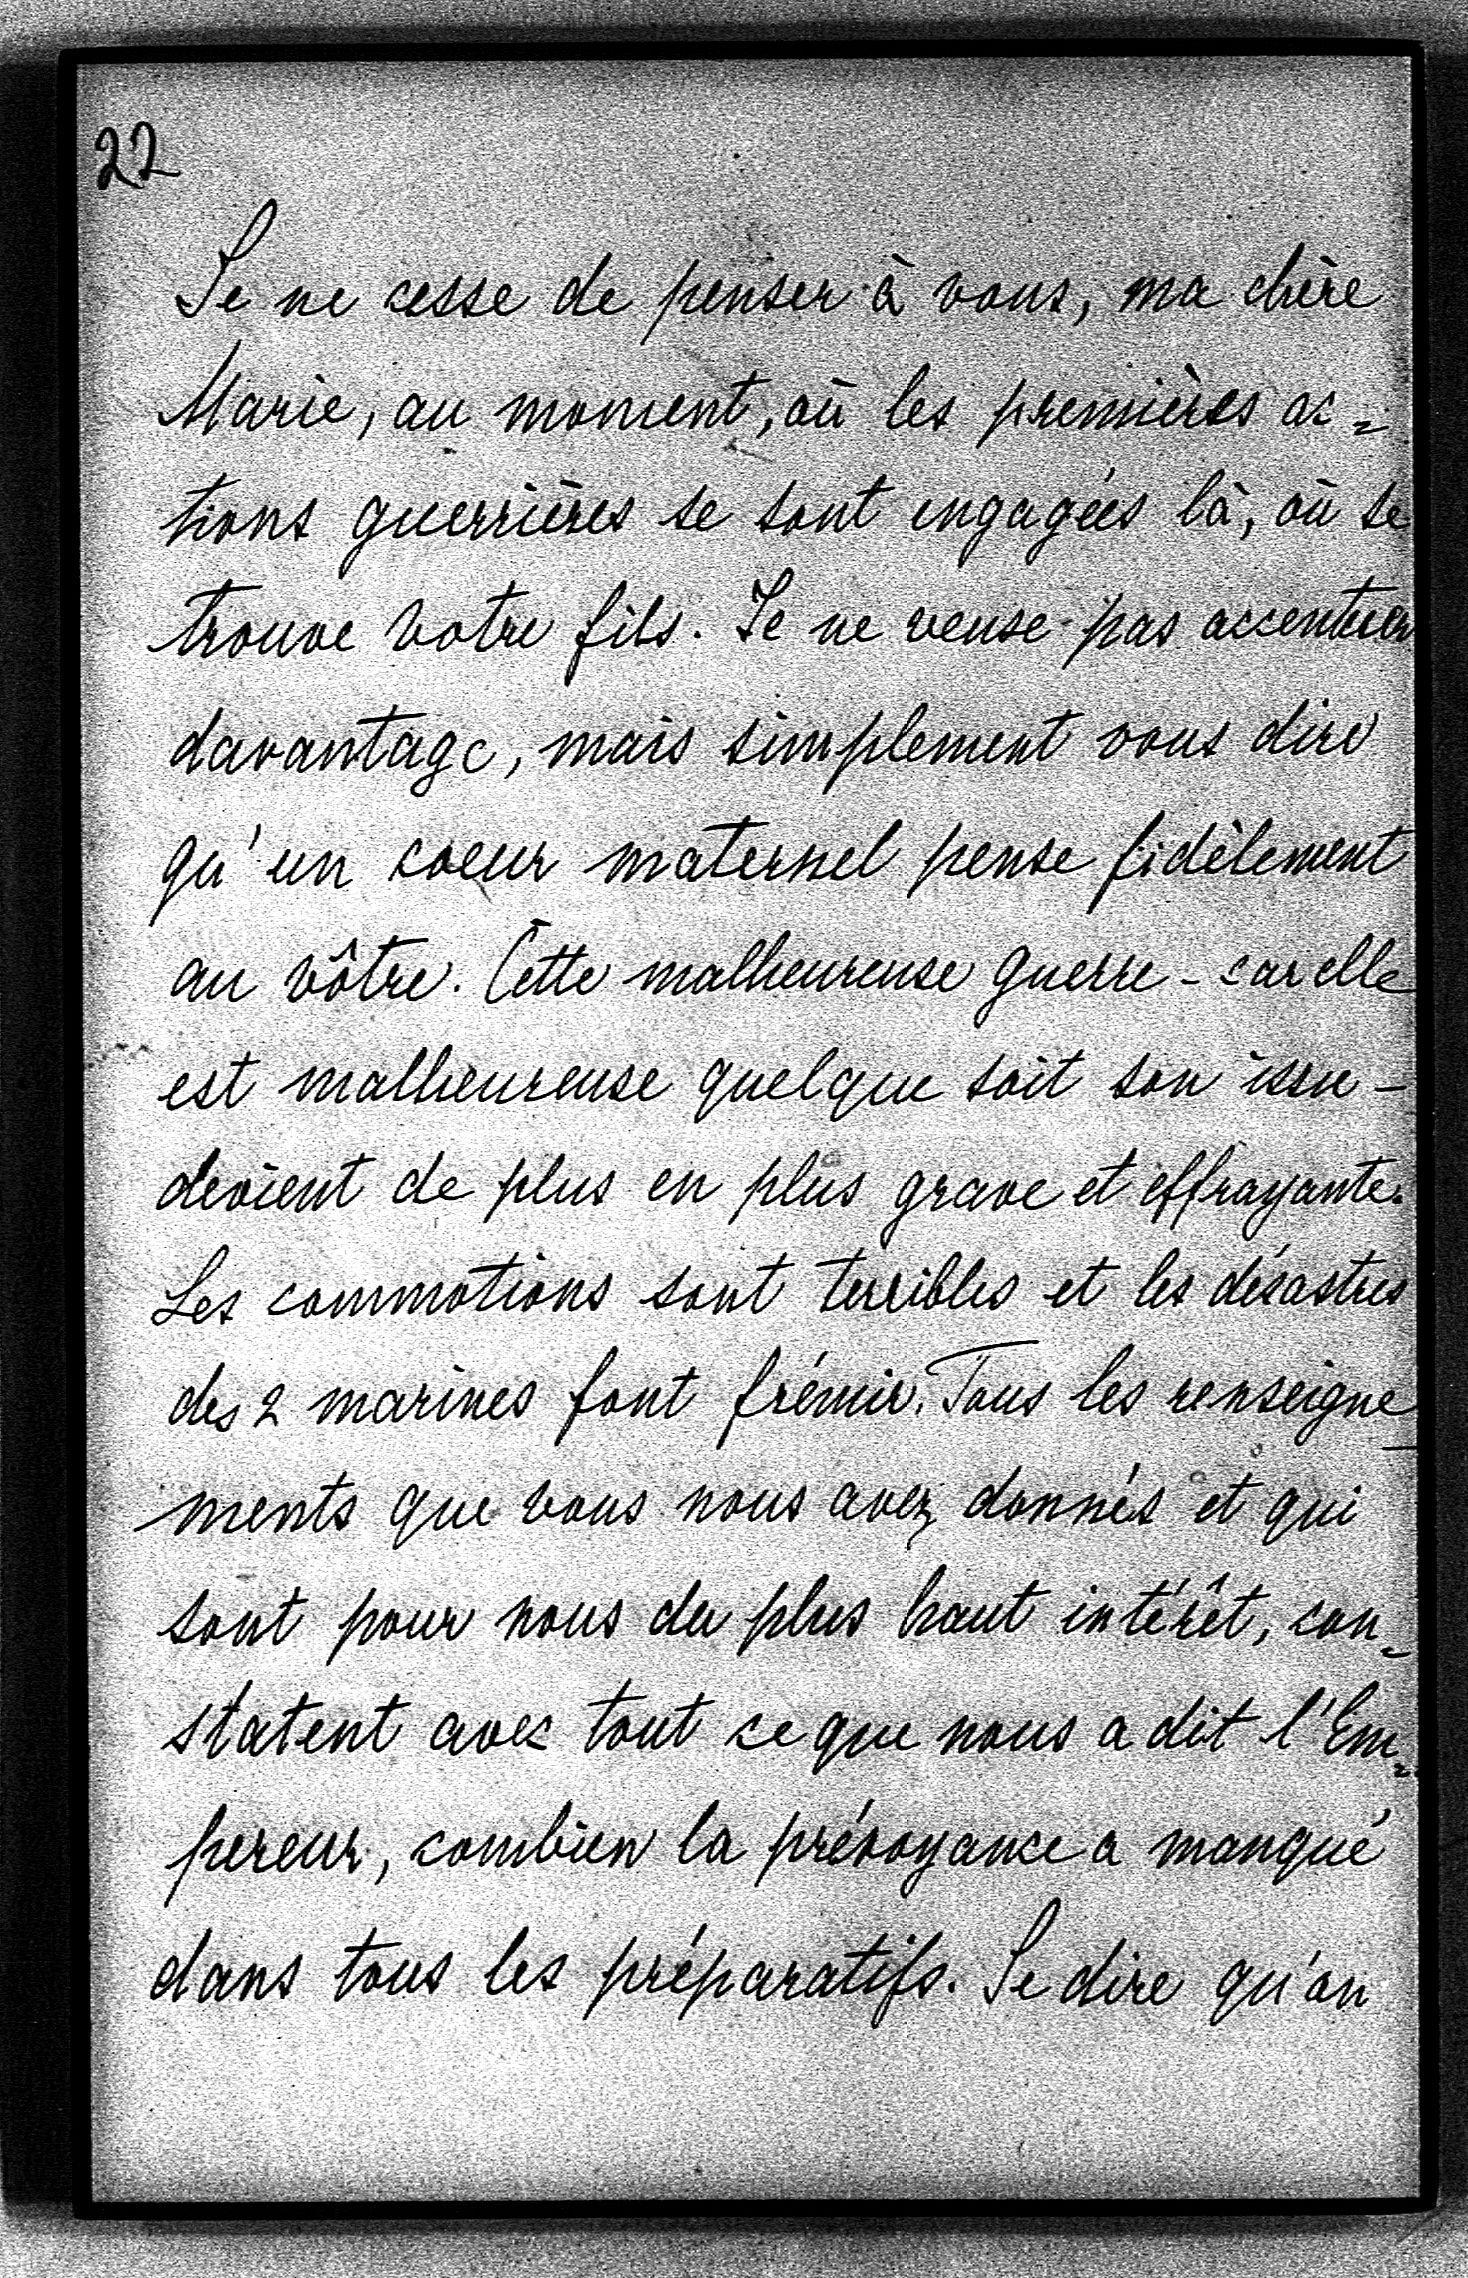 22
Je ne cesse de penser à vous, ma chère
Marie, au moment, où les premières ac=
tions guerrières se sont engagées là, où se
trouve votre fils. Je ne veuse pas accentuer
davantage, mais simplement vous dire
qu'un coeur maternel pense fidèlement
au vôtre. Cette malheureuse guerre - car elle
est malheureuse quelque soit son issu -
devient de plus en plus grave et effrayante.
Les commotions sont terribles et les désastres
des 2 marines font frémir. Tous les renseigne-
ments que vous nous avez donnés et qui
sont pour nous du plus haut intérêt, con=
statent avec tout ce que nous a dit l'Em=
pereur, combien la prévoyance a manqué
dans tous les préparatifs. Se dire qu'on